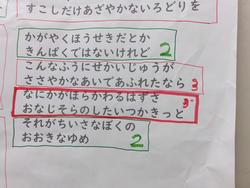 すこしだけあざやかないろどりを
かがやくほうせきだとか
きんぱくではないけれど 2
こんなふうにせかいじゅうが
ささやかなあいであふれたなら 3
なにかがほらかわるはずさ
おなじそらのしたいつかきっと 3
それがちいさなぼくの
おおきなゆめ 2